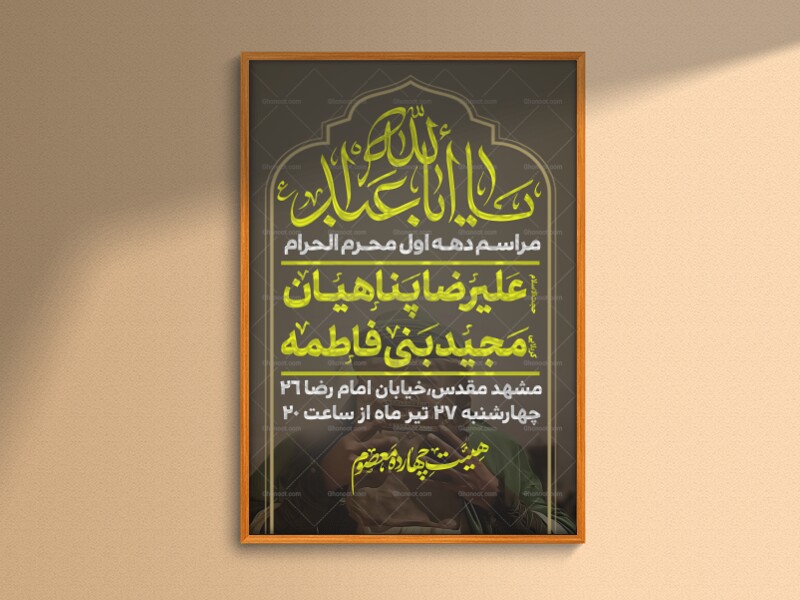 یا أبا عبدالله ع
مراسم دهه اول محرم الحرام
حجت‌الاسلام علیرضا پناهیان
کربلایی مجید بنی فاطمه
مشهد مقدس،خیابان امام رضا ۲۶
چهارشنبه ۲۷ تیر ماه از ساعت ۲۰
هیئت چهارده معصوم